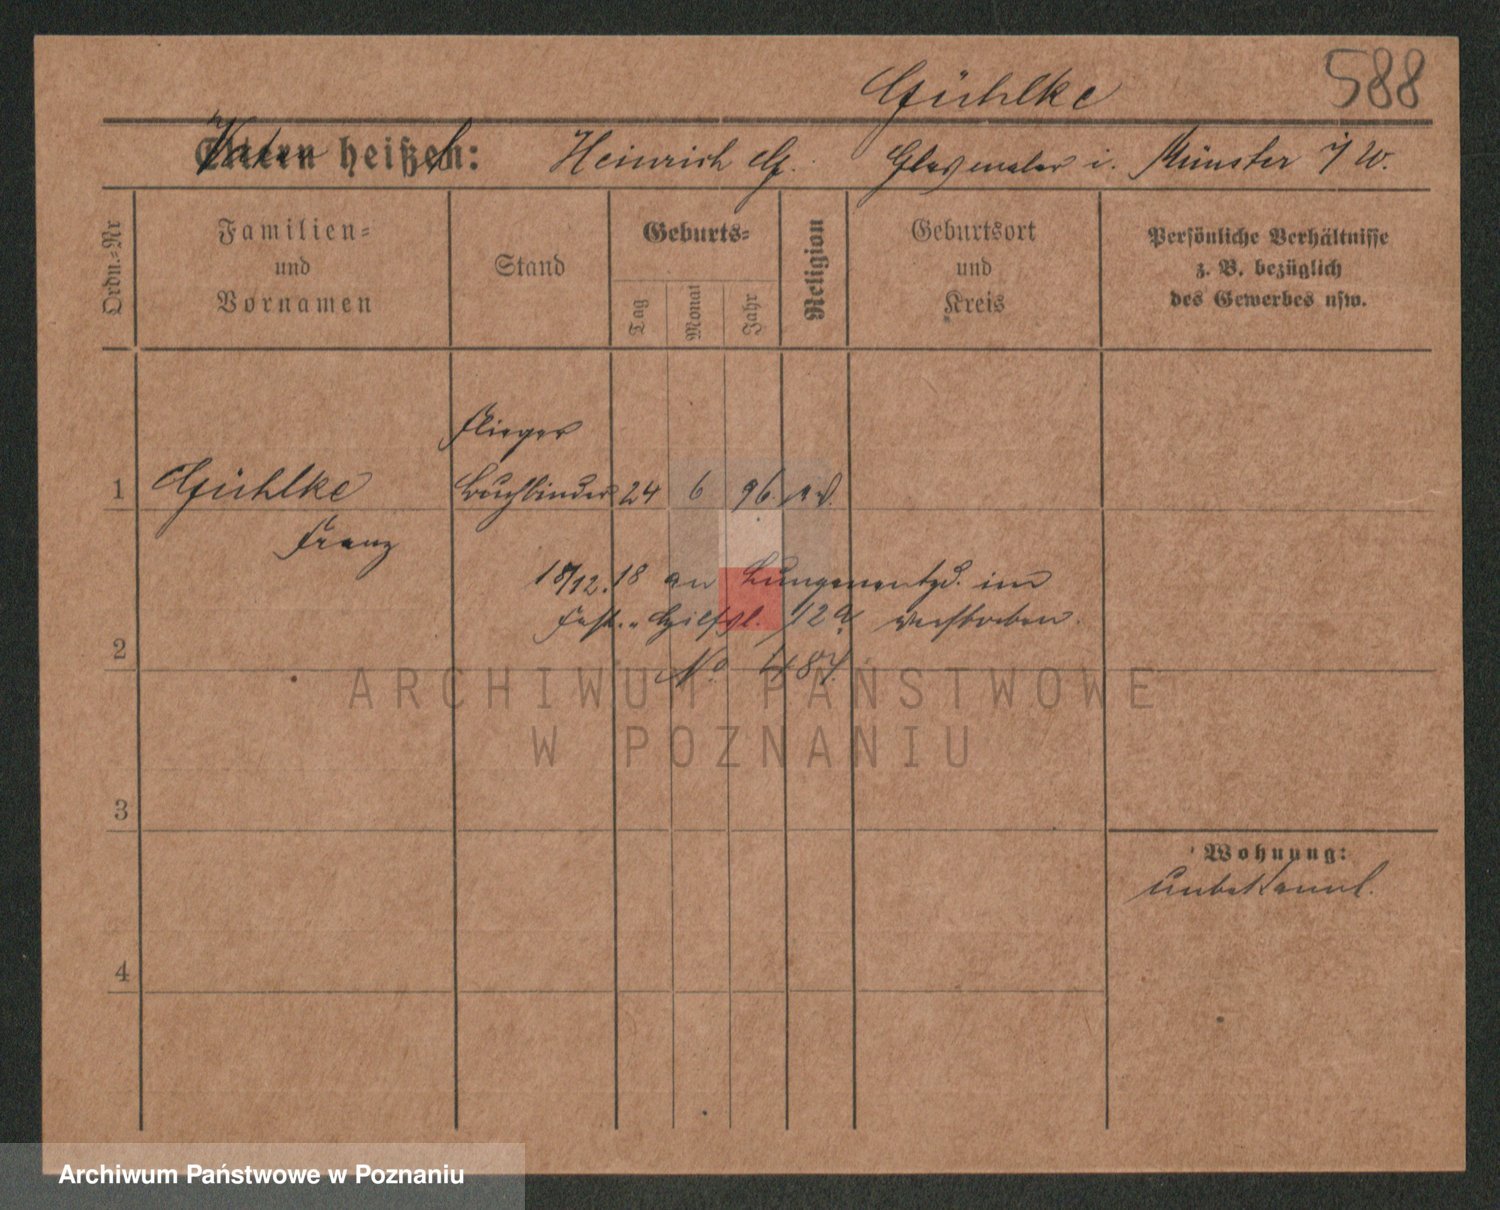 588
Gühlke
Eltern heißen: Vater h Heinrich G. Glasmaler i. Münster i/W.
Ordn.-Nr
Familien-
und
Vornamen
Stand
Geburts-
Tag
Monat
Jahr
Religion
Geburtsort
und
Kreis
Persönliche Verhältnisse
z. B. bezüglich
des Gewerbes usw.
Flieger
1 Gühlke Buchbinder 24 6 96
Franz
18/12.18 an Lungenentzd. im
Fest.-Hilfsl. 12a verstorben.
2
No 487.
ARCHIWUM PAŃSTWOWE
W POZNANIU
3
Wohnung:
unbekannt.
4
Archiwum Państwowe w Poznaniu